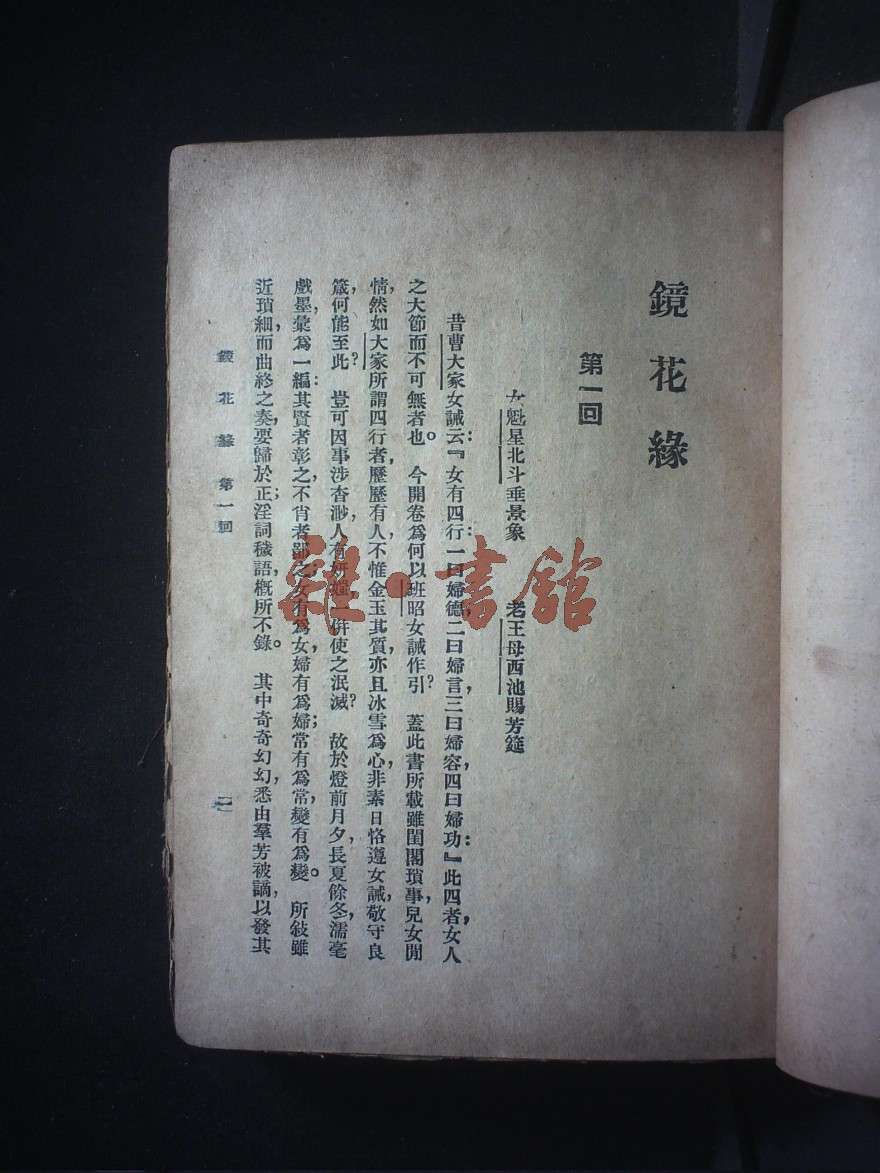 鏡花緣
第一回
女魁星北斗垂景象　老王母西池賜芳筵
昔曹大家女誡云：『女有四行：一曰婦德，二曰婦言，三曰婦容，四曰婦功：』此四者，女人
之大節而不可無者也。今開卷爲何以班昭女誡作引？蓋此書所載雖閨閣瑣事，兒女閒
情，然如大家所謂四行者，歷歷有人，不惟金玉其質，亦且冰雪爲心，非素日恪遵女誡，敬守良
箴，何能至此？豈可因事涉杳渺，人有妍媸，一併使之泯滅？故於燈前月夕，長夏餘冬，濡毫
戲墨，彙爲一編：其賢者彰之，不肖者鄙之；女有爲女，婦有爲婦；常有爲常，變有爲變。所敍雖
近瑣細，而曲終之奏，要歸於正；淫詞穢語，概所不錄。其中奇奇幻幻，悉由羣芳被謫，以發其
鏡花緣　第一回
一
雜·書館